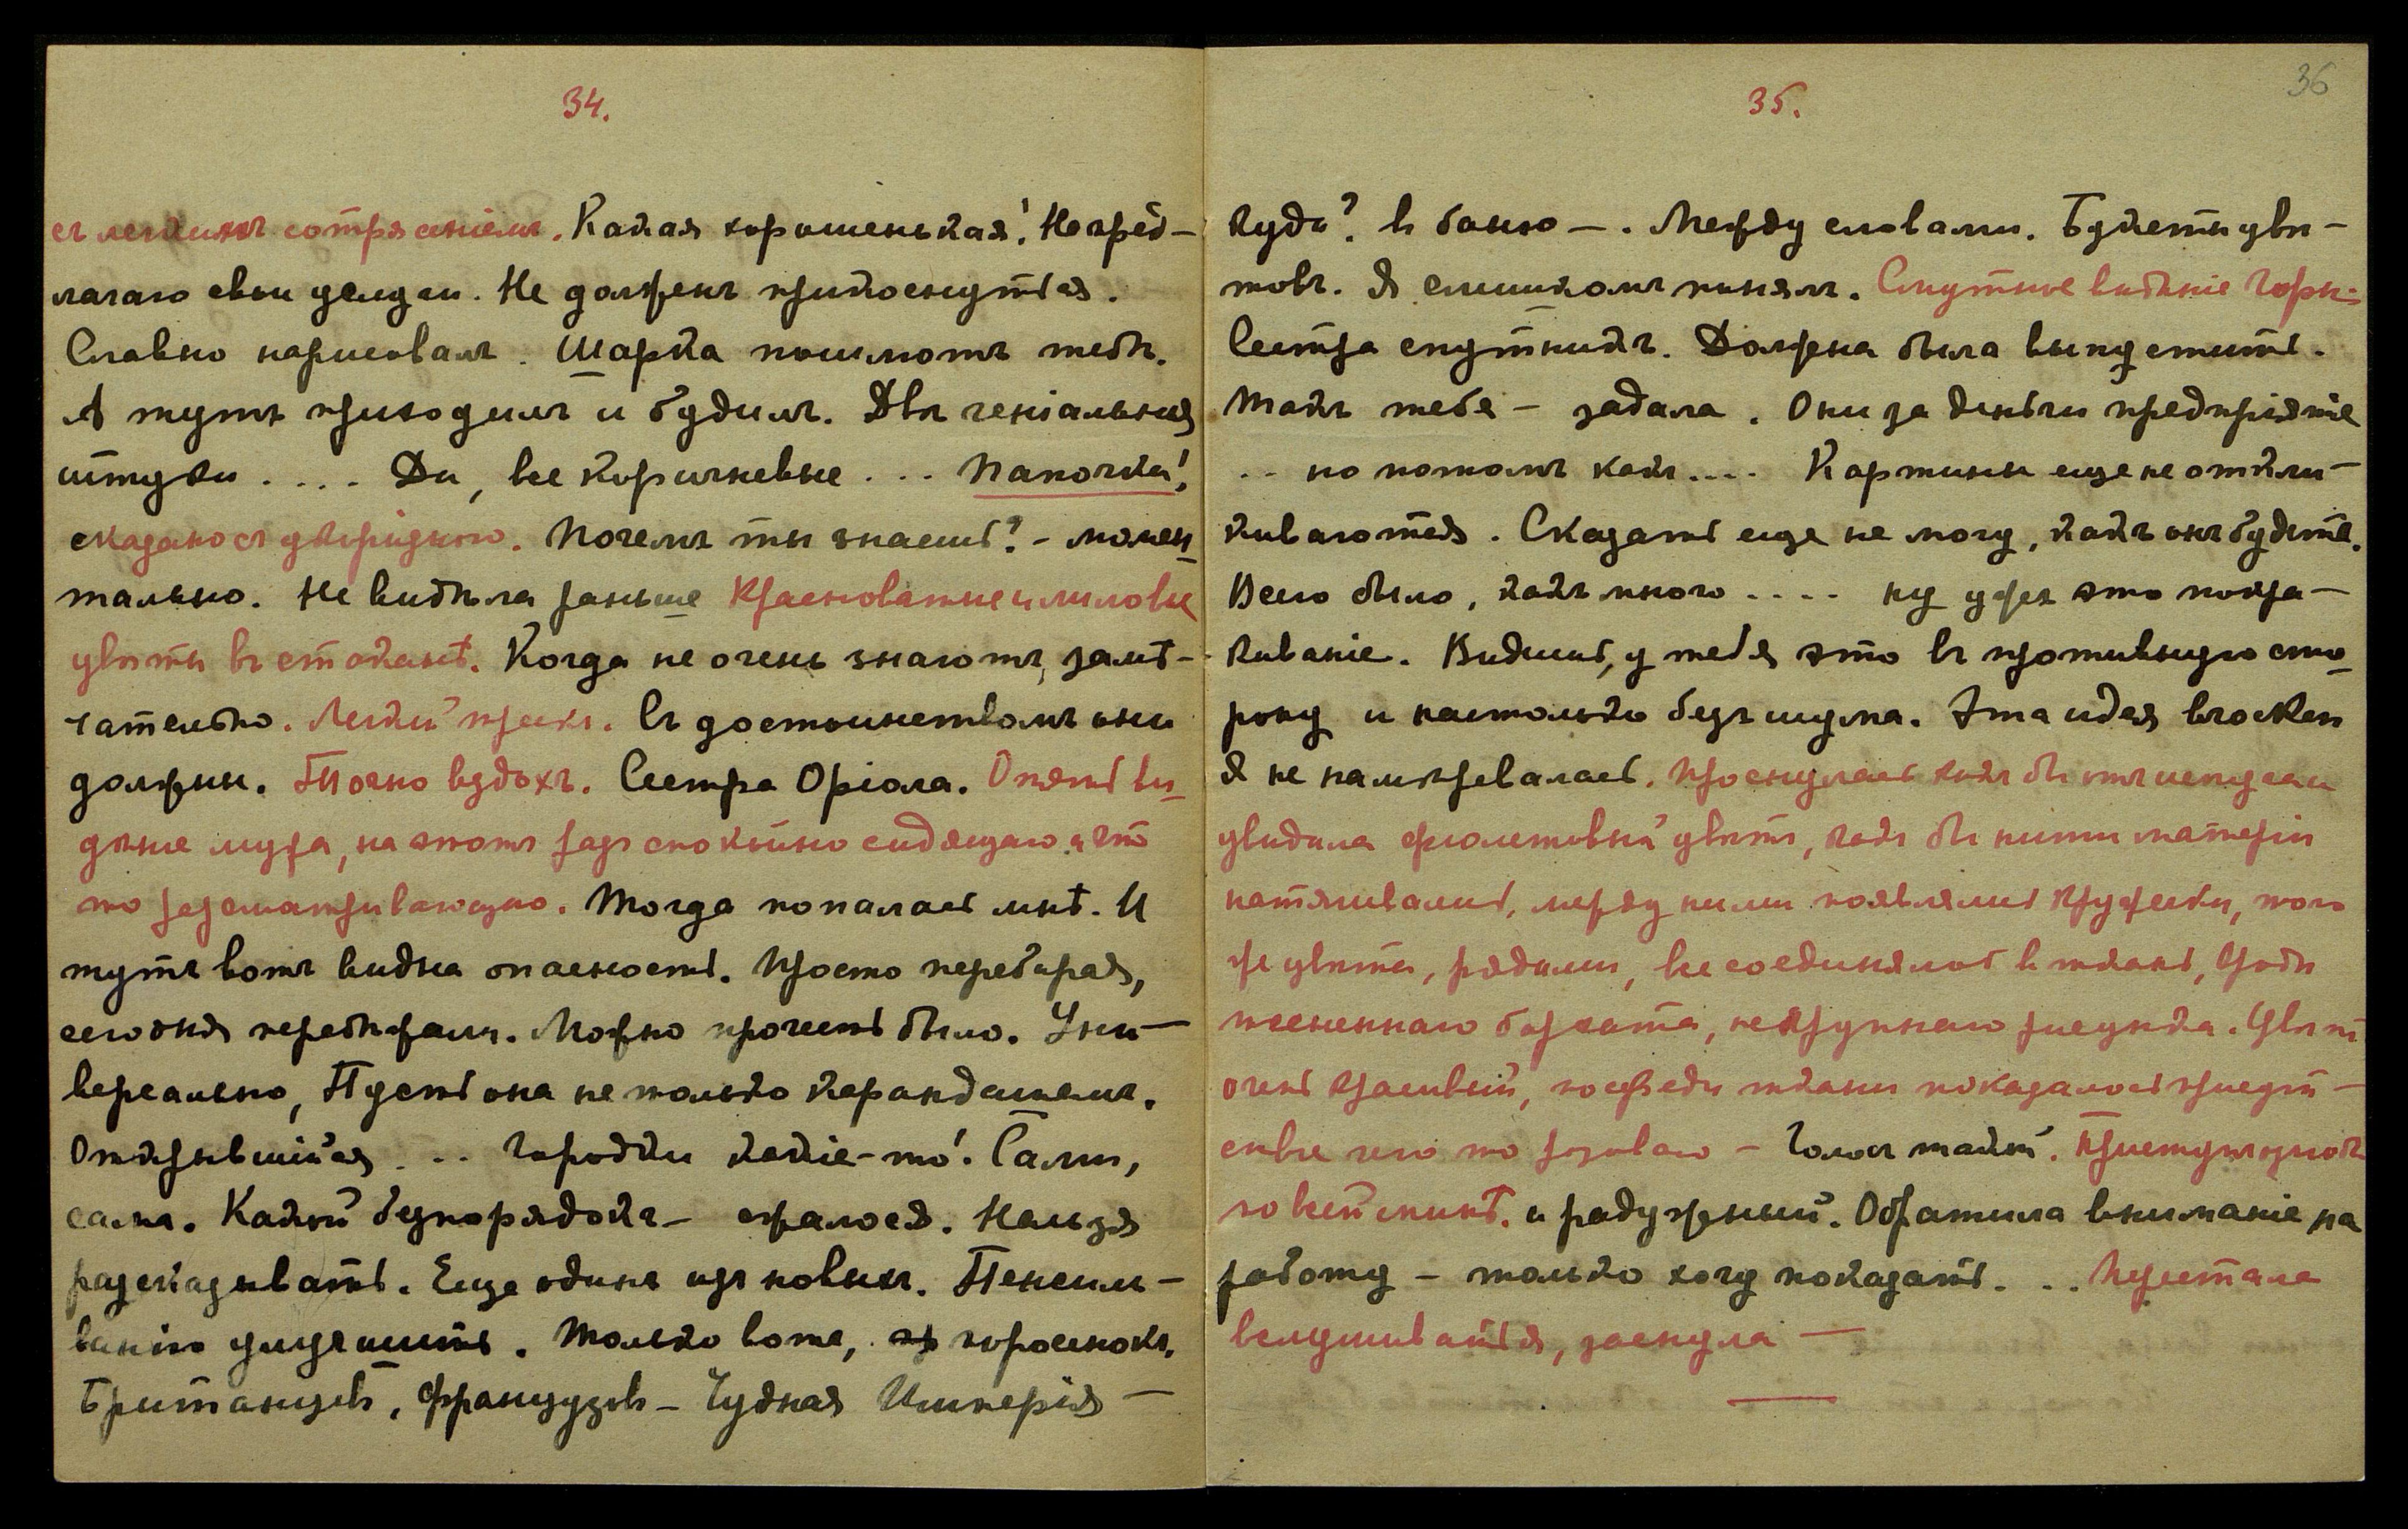 34.
съ легкимъ сотрясеніемъ. Какая хорошенькая! Не пред-
лагаю свои услуги. Не долженъ прикоснуться.
Славно нарисовалъ. Шарка пошлютъ тебѣ.
А тутъ приходилъ и будилъ. Двѣ геніальныя
штуки .... Да, все коричневые ... Папочка!
сказано съ укоризною. Почемъ ты знаешь? - момен-
тально. Не видѣла раньше красноватые и лиловые
цвѣты въ стаканѣ. Когда не очень знаютъ, замѣ-
чательно. Легкій крикъ. Съ достоинствомъ они
должны. Точно вздохъ. Сестра Оріола. Опять ви-
дѣніе мужа, на этотъ разъ спокойно сидящаго и что
то разсматривающаго. Тогда попалась мнѣ. И
тутъ вотъ видна опасность. Просто перебирая,
сегодня перебирали. Можно прочесть было. Уни-
версально, Пусть она не только карандашемъ.
Открывшійся ... Городки какіе-то! Сами,
сама. Какой безпорядокъ - жралося. Нельзя
разсказывать. Еще одинъ изъ новыхъ. Пенсиль-
ванію улучшить. Только вотъ, поросенокъ.
Британцевъ, французовъ - Чудная Имперія -
35.
36
Куда? в баню - . Между словами. Букеты цвѣ-
товъ. Я слишкомъ понялъ. Смутное видѣніе горы.
Сестра спутникъ. Должна была выпустить.
Такъ тебѣ - задала. Они за деньги предпріятіе
.. но потомъ какъ .... Картины еще не откли-
киваются. Сказать еще не могу, какъ онъ будетъ.
Всего было, какъ много .... ну ужъ это покра-
киваніе. Видишь, у тебя это въ противную сто-
рону и настолько безъ шума. Эта идея
Я не намѣревалась. Проснулась какъ бы отъ испуга и
увидѣла фіолетовый цвѣтъ, какъ бы нити матеріи
натягивались, между ними появлялись кружечки, того
же цвѣта, рядами, все соединялось в ткань, вродѣ
тисненнаго бархата, некрупнаго рисунка. Цвѣтъ
очень красивый, посреди ткани показалось присут-
ствіе чего то розоваго - Голосъ такой. Приступъ озноба
по всей спинѣ. и радужный. Обратила вниманіе на
работу - только хочу показать. .. Перестала
вслушиваться, заснула -